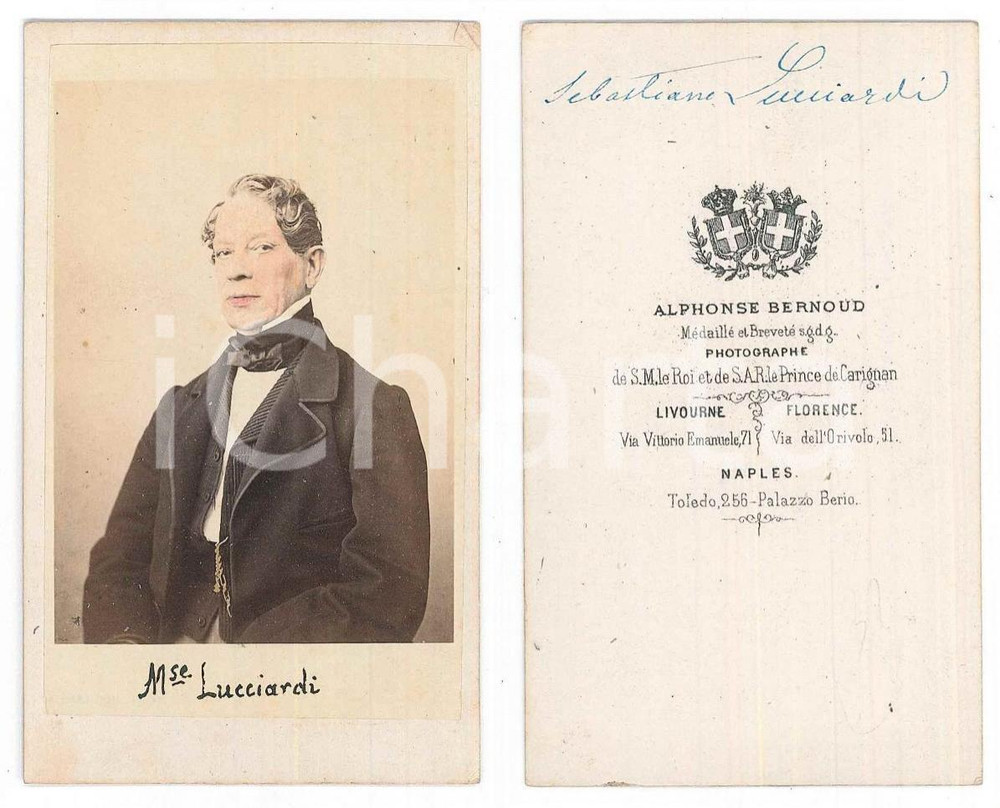 Mse. Lucciardi
Sebastiano Lucciardi
ALPHONSE BERNOUD
Médaillé et Breveté s.g.d.g.
PHOTOGRAPHE
de S.M. le Roi et de S.A.R. le Prince de Carignan
LIVOURNE FLORENCE.
Via Vittorio Emanuele, 71 Via dell'Orivolo, 51.
NAPLES.
Toledo, 256-Palazzo Berio.